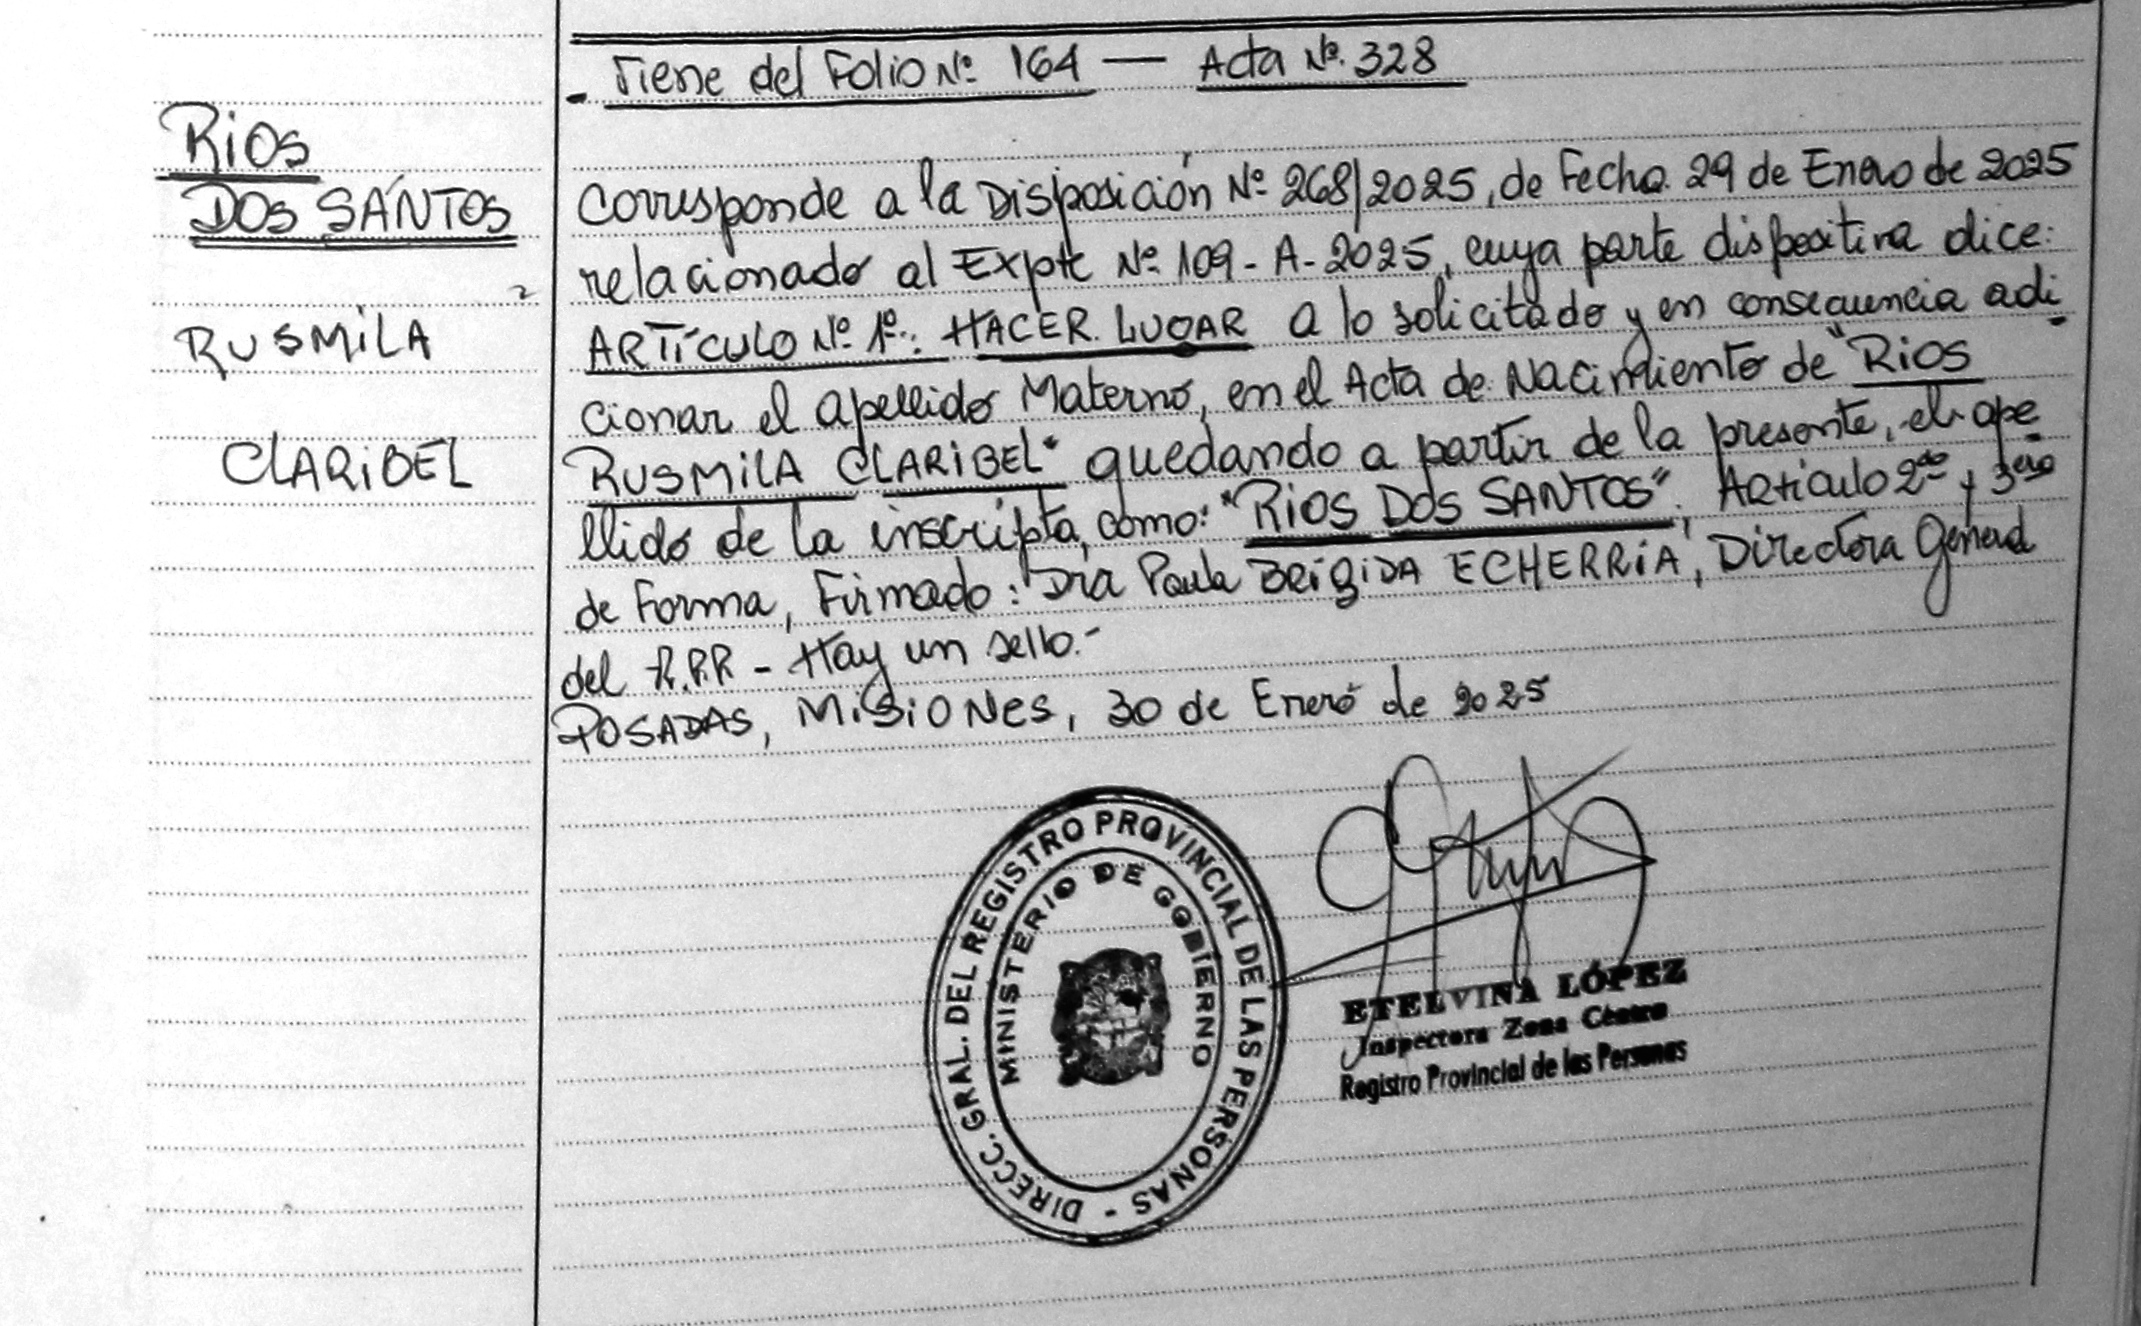 Viene del Folio Nº 164 — Acta Nº 328
Rios
DOS SANTOS
RUSMILA
CLARIBEL
Corresponde a la Disposición Nº 268/2025, de Fecha 29 de Enero de 2025
relacionado al Expte Nº 109-A-2025, cuya parte dispositiva dice:
ARTÍCULO Nº 1º: HACER LUGAR a lo solicitado y en consecuencia adi
cionar el apellido Materno, en el Acta de Nacimiento de "Rios
RUSMILA CLARIBEL" quedando a partir de la presente, el ape
llido de la inscripta, como: "Rios Dos SANTOS". Articulo 2do y 3ero
de Forma, Firmado: Dra Paula BRIGIDA ECHERRIA, Directora General
del R.P.P - Hay un sello.-
POSADAS, MISIONES, 30 de Enero de 2025
DIRECC. GRAL. DEL REGISTRO PROVINCIAL DE LAS PERSONAS -
MINISTERIO DE GOBIERNO
ETELVINA LÓPEZ
Inspectora Zona Centro
Registro Provincial de las Personas